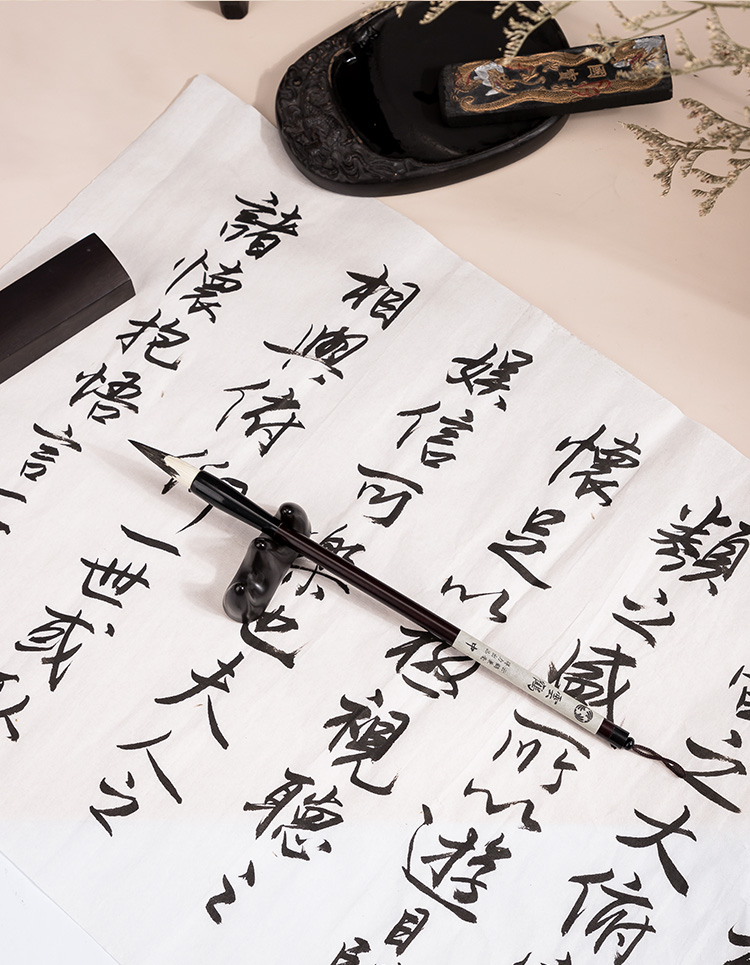 之大俯
類之盛所以遊目
懷足以極視聽之
娛信可樂也夫人之
相與俯仰一世或
諸懷抱悟言一
國
雲鶴
中